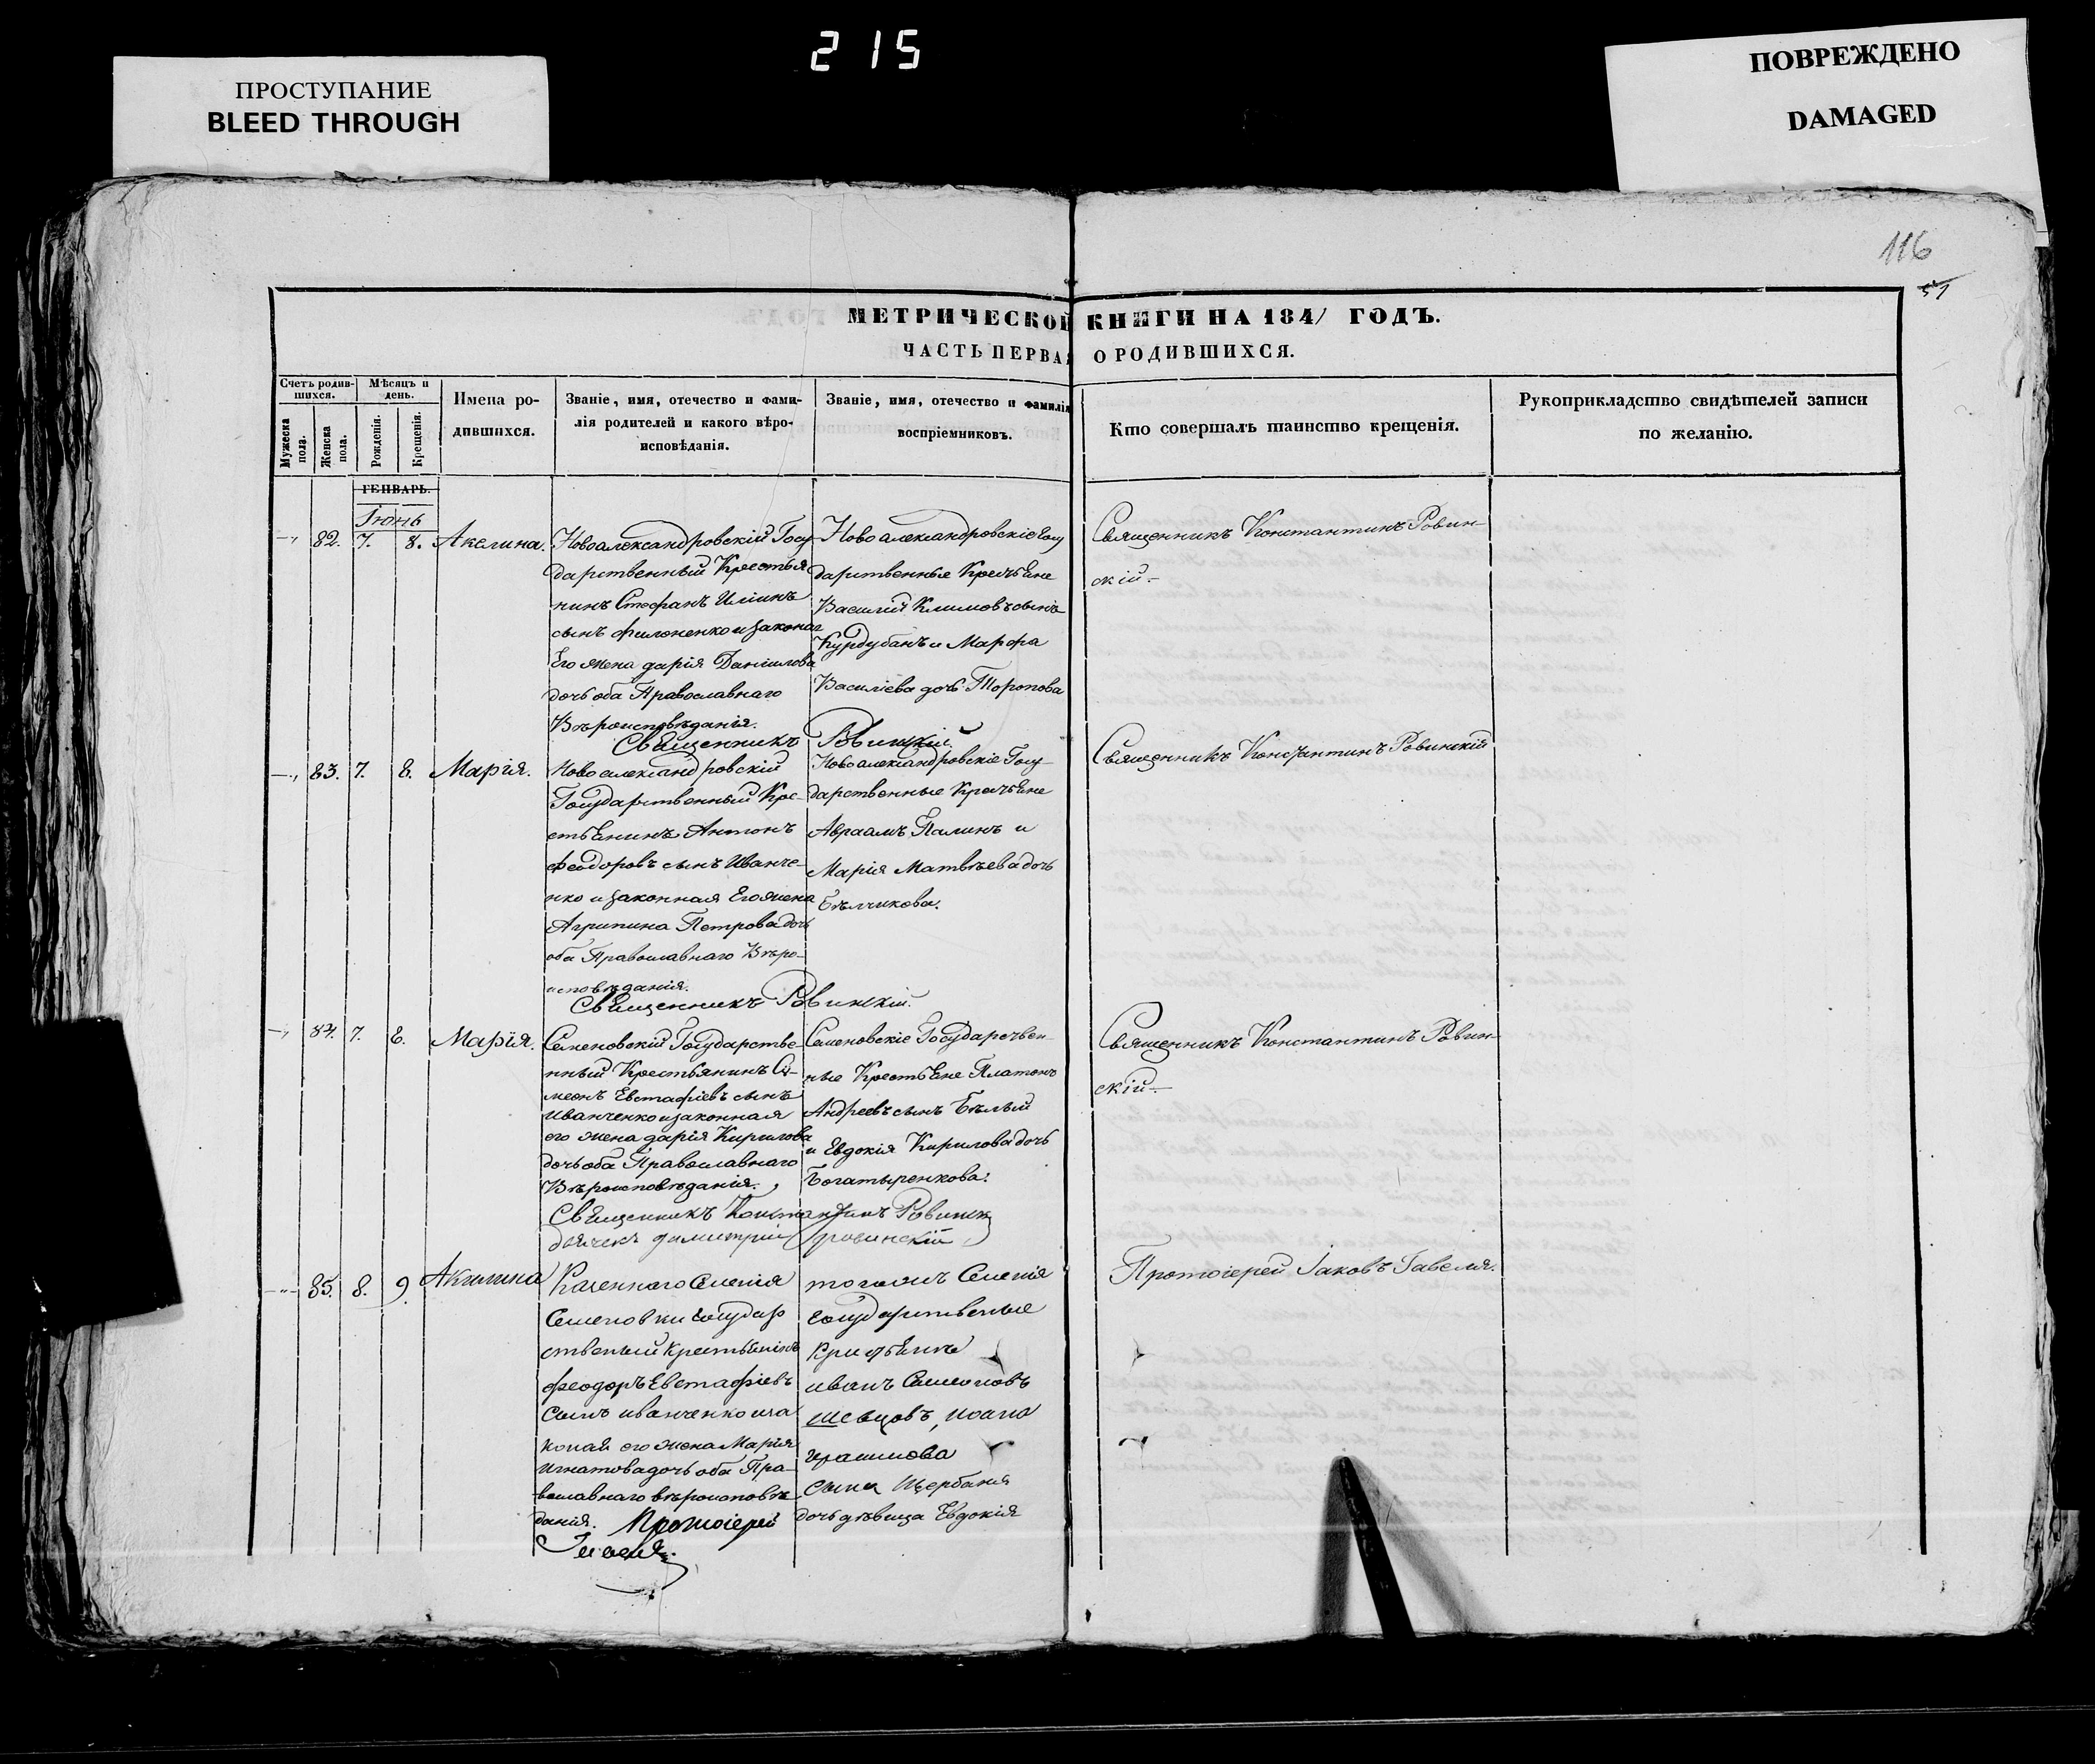 215
ПРОСТУПАНИЕ
BLEED THROUGH
ПОВРЕЖДЕНО
DAMAGED
116
57
МЕТРИЧЕСКОЙ КНИГИ НА 1841 ГОДЪ.
ЧАСТЬ ПЕРВАЯ О РОДИВШИХСЯ.
Счетъ родив-
шихся.
Мужеска
пола.
Женска
пола.
Мѣсяцъ и
день.
Рожденія.
Крещенія.
Имена ро-
дившихся.
Званіе, имя, отечество и фами-
лія родителей и какого вѣро-
исповѣданія.
Званіе, имя, отечество и фамилія
воспріемниковъ.
Кто совершалъ таинство крещенія.
Рукоприкладство свидѣтелей записи
по желанію.
ГЕНВАРЬ.
Іюнь
82. 7. 8. Акелина.
Новоалександровскій Госу-
дарственный Крестья
нинъ Стефанъ Илiинъ
сынъ Филоненко и законая
Его жена дарія Даніилова
дочь оба Православнаго
Вѣроисповѣданія.
Новоалександровскіе Госу
дарственные Крестьяне
Василій Климовъ сынъ
Курдубанъ и Марфа
Василіева дочь Торопова
Священникъ Константинъ Ровин-
скій.
Священникъ Ровинскій.
83. 7. 8. Марія.
Новоалександровскій
Государственный Кре-
стьянинъ Антонъ
Феодоровъ сынъ Иванче-
нко и законная Его жена
Агрипина Петрова дочь
оба Православнаго Вѣро-
исповѣданія.
Новоалександровскіе Госу-
дарственные Крестьяне
Авраамъ Палинъ и
Марія Матвѣева дочь
Бѣлчикова.
Священникъ Константинъ Ровинскій
Священникъ Ровинскій.
84. 7. 8. Марія.
Семеновскій Государстве-
нный Крестьянинъ Си-
меонъ Евстафіевъ сынъ
Иванченко и законная
его жена дарія Кирилова
дочь оба Православнаго
Вѣроисповѣданія.
Семеновскіе Государствен-
ные Крестьяне Платонъ
Андреевъ сынъ Бѣлый
и Евдокія Кирилова дочь
Богатыренкова.
Священникъ Константинъ Ровин-
скій
Священникъ Константинъ Ровинск
дьячекъ димитрій Ровинскій
85. 8. 9. Акилина
Казеннаго Селенія
Семеновки Государ
ственый крестьянінъ
феодоръ Евстафіевъ
Сынъ иванченко иза
конай его жена Марія
Игнатова дочь оба Пра-
вославнаго вѣроисповѣ
данія.
того жъ Селенія
Государственые
Кристьяне
иванъ Семеновъ
Шевцовъ, иоана
герасимова
Сына Щербаня
дочь дѣвица Евдокія
Протоіерей Іаковъ Гавеля.
Протоіерей
Гавеля.